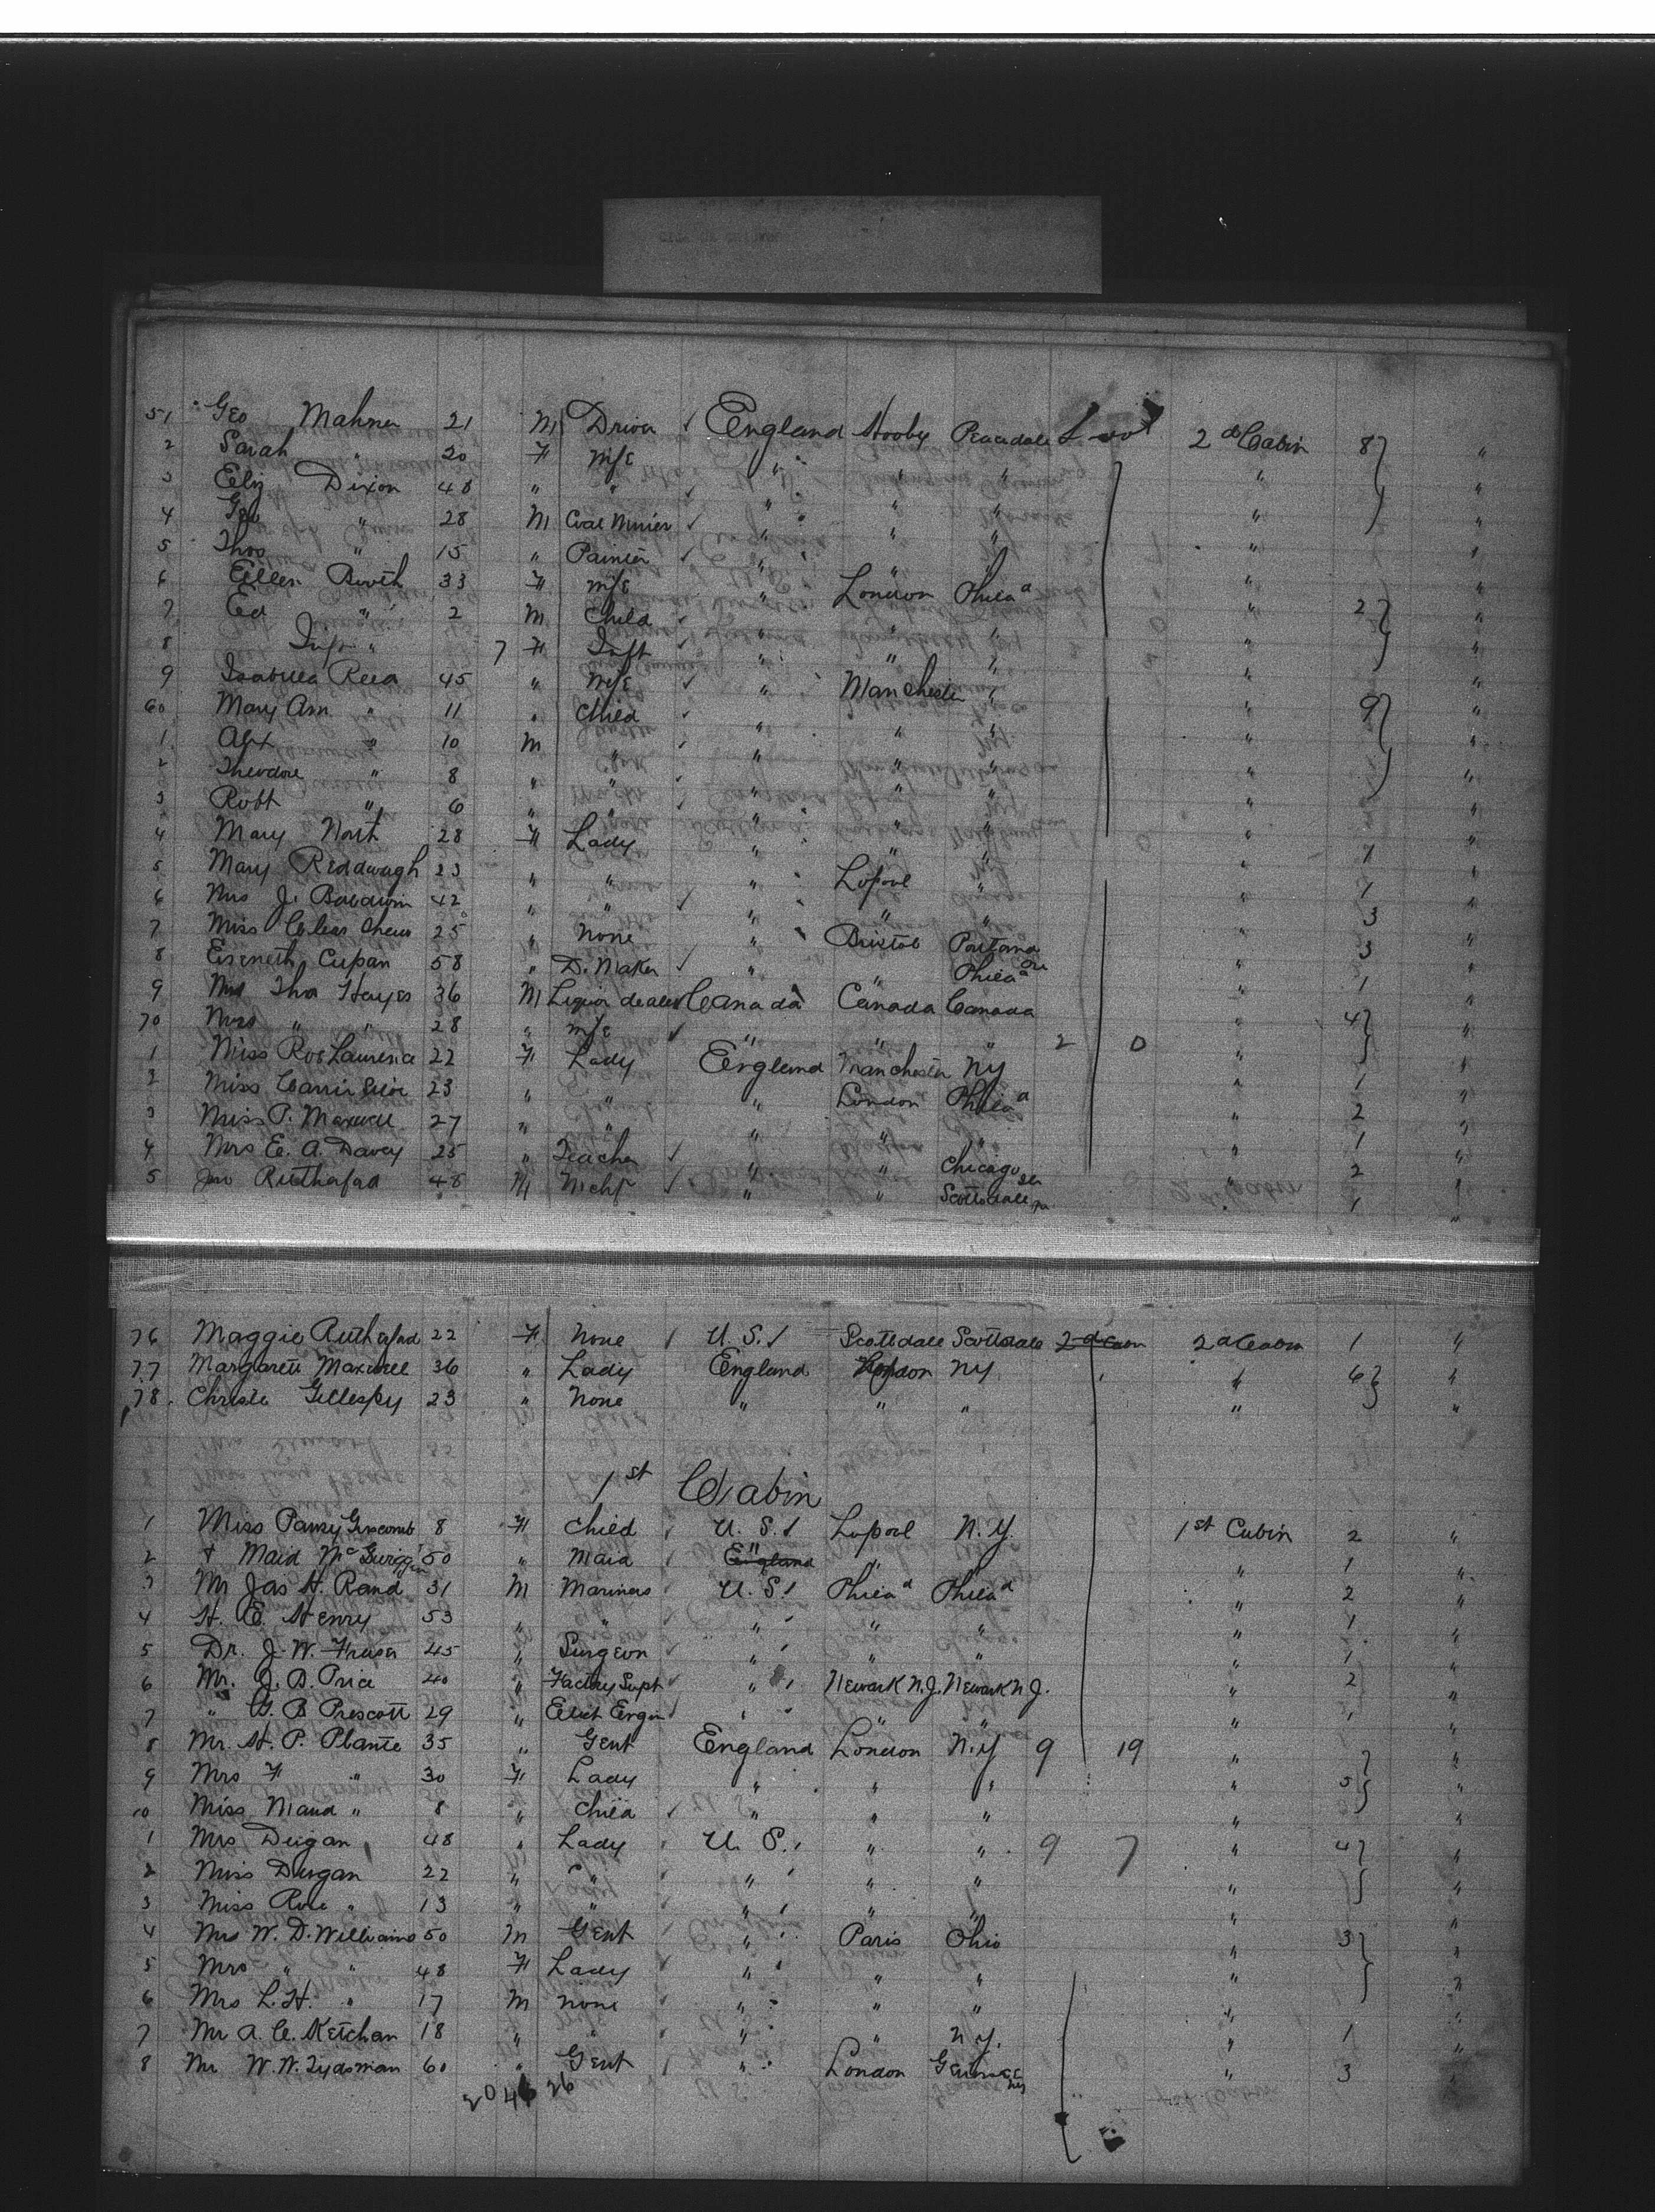 51 Geo Mahner 21 M Driver England Hooby Peacedale 2d Cabin 8 "
2 Sarah " 20 F Wife " " " " "
3 Eliz Dixon 48 " " " " " " "
4 Geo " 28 M Coal Minier " " " " "
5 Thos " 15 " Painter " " " " "
6 Ellen Booth 33 F Wife " London Phila " "
7 Ed " 2 M Child " " " " 2 "
8 Inft " 7 F Inft " " " " "
9 Isabella Reed 45 " Wife " Manchester " " "
60 Mary Ann " 11 " Child " " " " 9 "
1 Alx " 10 M " " " " " "
2 Theodore " 8 " " " " " " "
3 Robt " 6 " " " " " " "
4 Mary North 28 F Lady " " " " 1 "
5 Mary Reddaugh 23 " " " Lpool " " 1 "
6 Mrs J. Baldwin 42 " " " " " " 3 "
7 Miss 25 " None " Bristol Portland " 3 "
8 Cupan 58 " D. Maker " " Phila " 1 "
9 Tho Hayes 36 M Liquor dealer Canada Canada Canada " 4 "
70 Mrs " " 28 " Wife " " " 2 0 " "
1 Miss 22 F Lady England Manchester NY " 1 "
2 Miss Carrie 23 " " " London Phila " 2 "
3 Miss P. Maxwell 27 " " " " " " 1 "
4 Mrs E. A. Davey 25 " Teacher " " Chicago " 2 "
5 Jno Rutherford 48 M " " Scottsdale Pa " 1 "
76 Maggie Rutherford 22 F None U.S. Scottsdale Scottsdale 2d Cabin 2d Cabin 1 "
77 Margarett Maxwell 36 " Lady England London NY " 6 "
78. Christe Gillespy 23 " None " " " " "
1st Cabin
1 Miss Griscomb 8 F Child U.S. Lpool N.Y. 1st Cabin 2 "
2 + Maid 50 " Maid England " " 1 "
3 Mr Jas H. Rand 31 M Mariners U.S. Philad Philad " 2 "
4 H. E. Henry 53 " " " " " " 1 "
5 Dr. J. W. Fraser 45 " Surgeon " " " " 1 "
6 Mr. J. B. Price 40 " Factory Supt " Newark N.J. Newark N.J. " 2 "
7 " G. B Prescott 29 " Elect Engin " " " " 1 "
8 Mr. H. P. Plante 35 " Gent England London N.Y 9 19 " "
9 Mrs F " 30 F Lady " " " " 5 "
10 Miss Maud " 8 " Child " " " " "
1 Mrs Duigan 48 " Lady U.S. " " 9 7 " 4 "
2 Miss Duigan 22 " " " " " " "
3 Miss Rose " 13 " " " " " " "
4 Mr W. D. Williams 50 M Gent " Paris Ohio " 3 "
5 Mrs " " 48 F Lady " " " " "
6 Mr L. H. " 17 M None " " " " "
7 Mr A. C. Ketchan 18 " " " " N.Y. " 1 "
8 Mr W. W. 60 " Gent " London " 3 "
2046 26